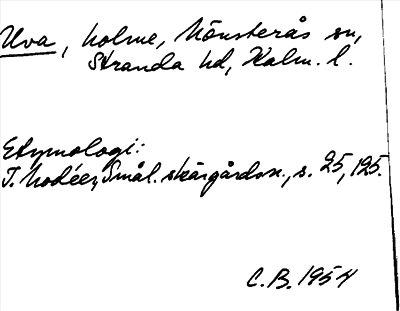 Uva, holme, Mönsterås sn,
Stranda hd, Kalm. l.
Etymologi:
I. Modéer, Smål. skärgårdsn., s. 25, 125.
C.B. 1954